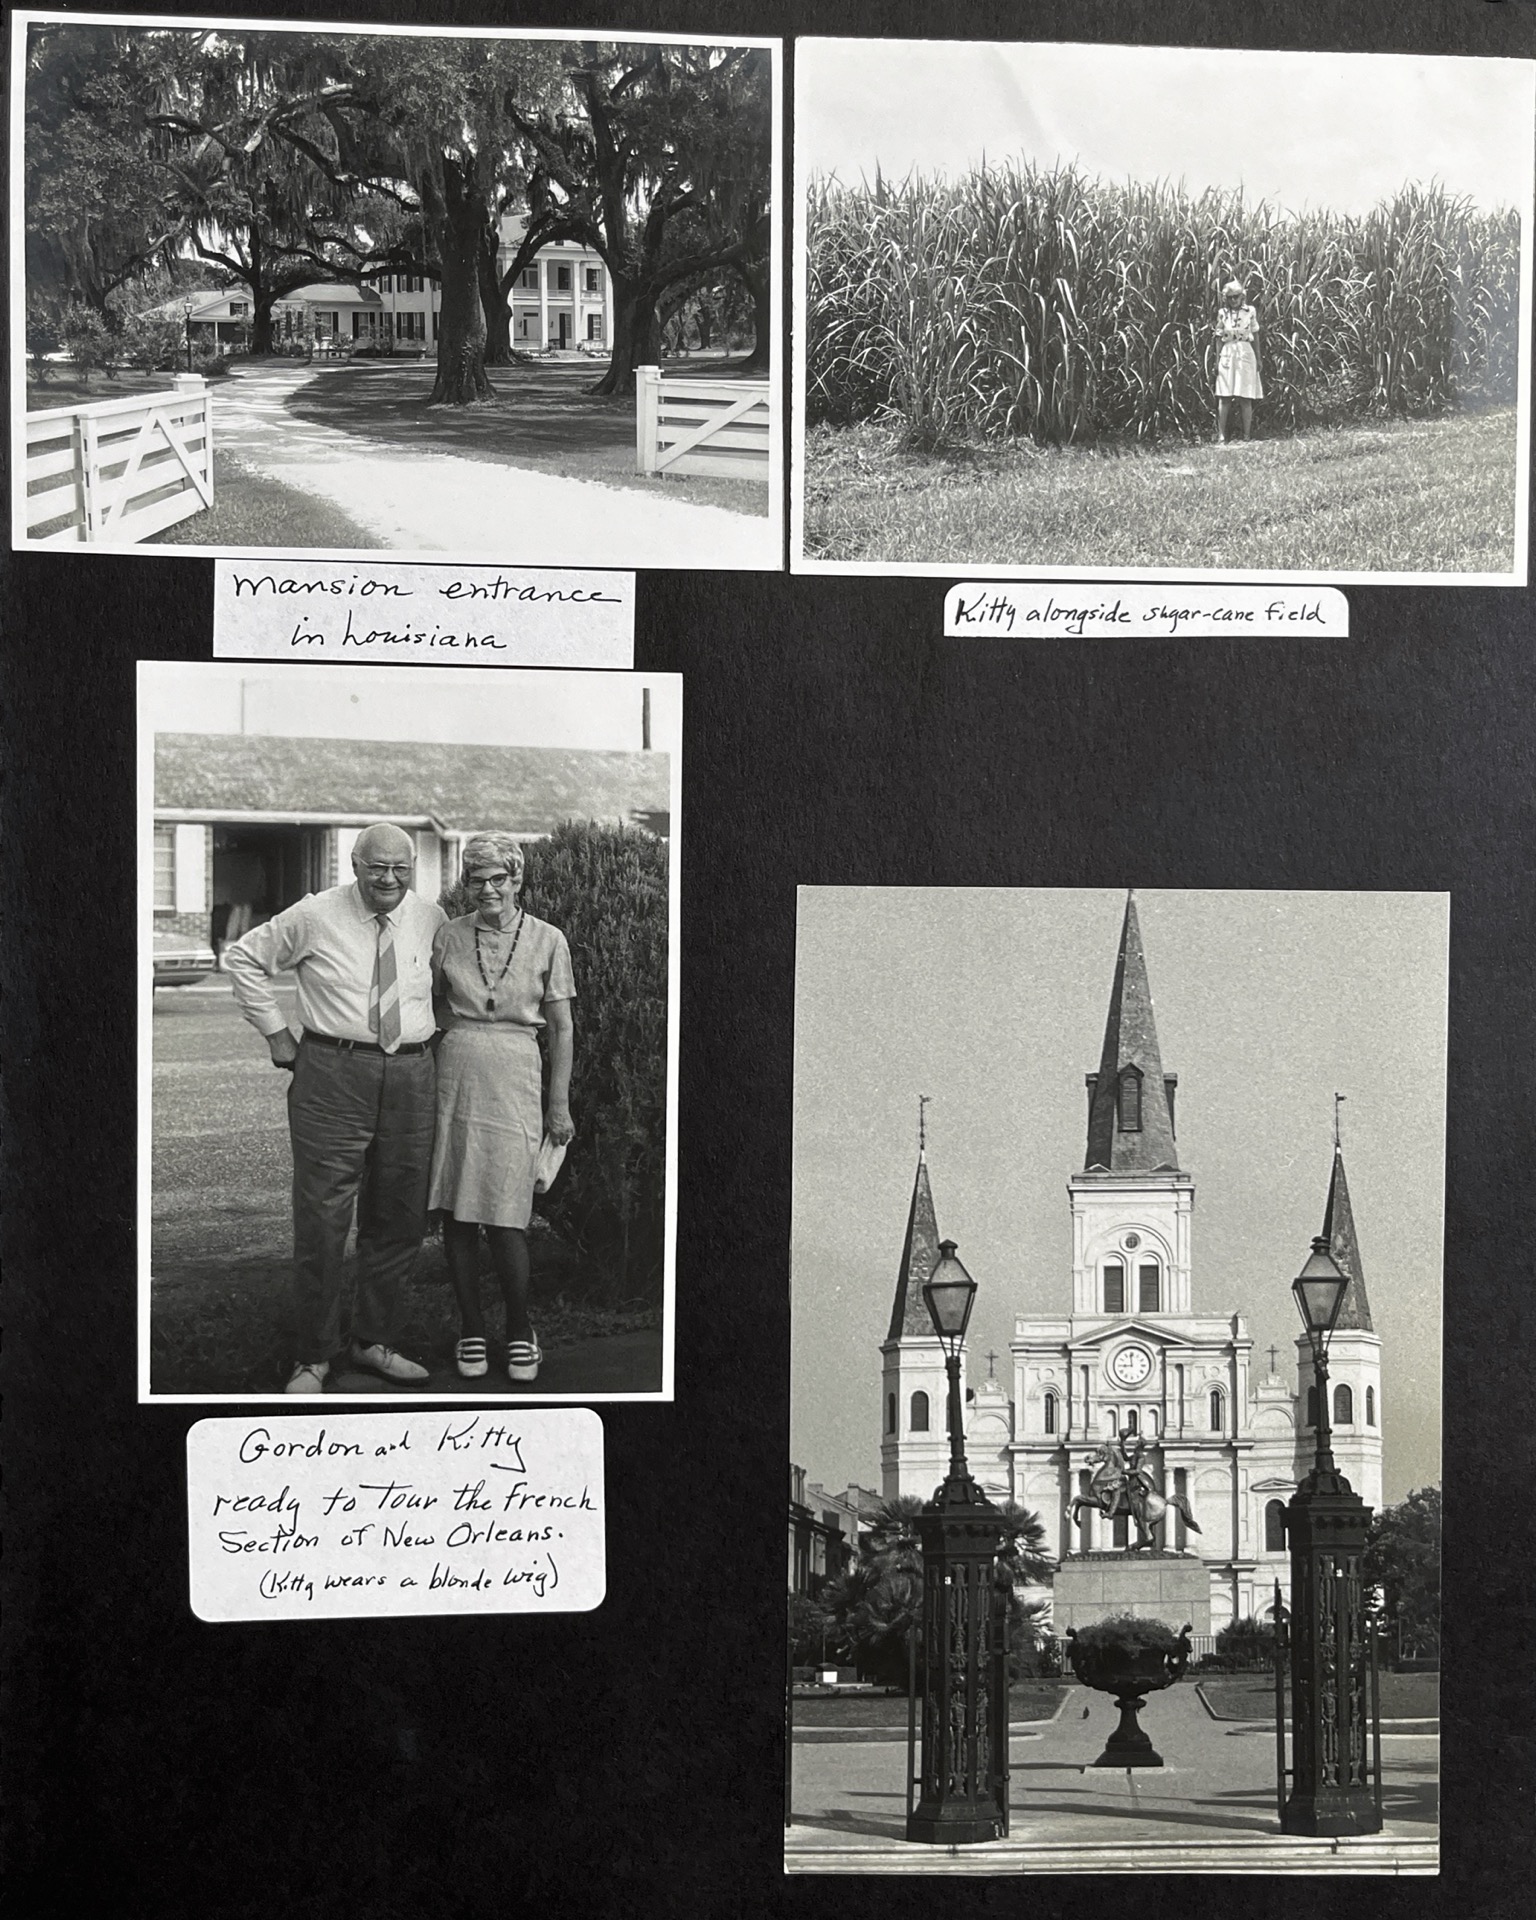 Mansion entrance
in Louisiana
Kitty alongside sugar-cane field
Gordon and Kitty
ready to Tour the French
Section of New Orleans.
(Kitty wears a blonde wig)